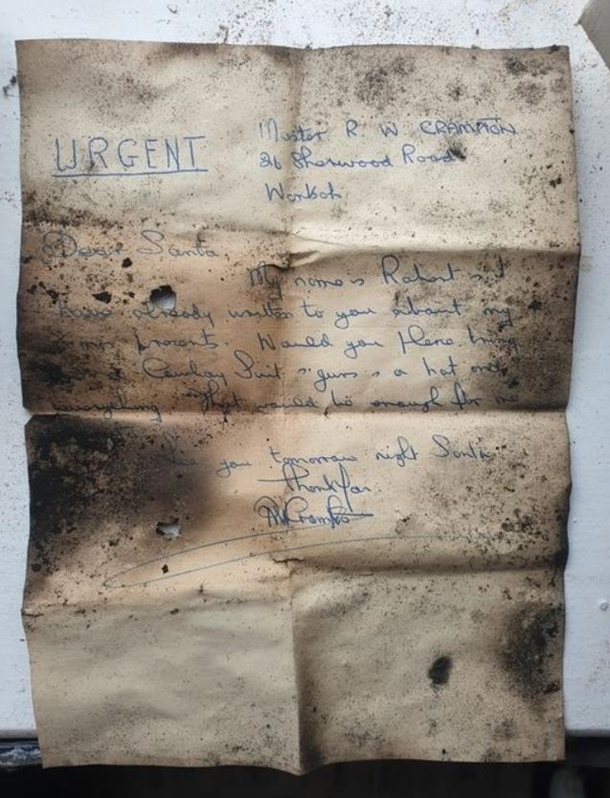 URGENT
Master R W CRAMPTON
26 Sherwood Road
Worksop
Dear Santa
My name is Robert & I
have already written to you about my
xmas presents. Would you please bring
me a Cowboy Suit & guns & a hat and
everything. That would be enough for me
See you tomorrow night Santa
Thank You
RWCrampton